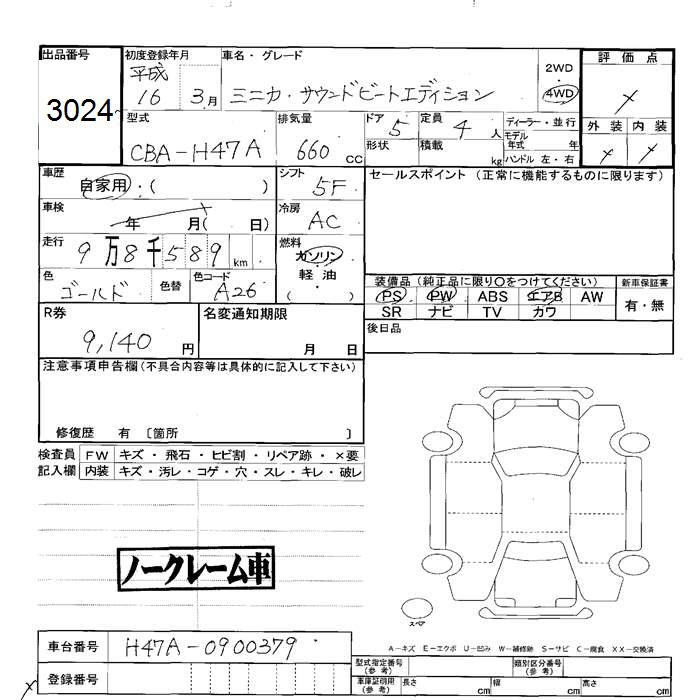 出品番号
3024
初度登録年月
平成
16 3月
車名・グレード
ミニカ・サウンドビートエディション
2WD
・
4WD
評価点
外装 内装
型式
CBA-H47A
排気量
660 CC
ドア 5
定員 4 人
ディーラー・並行
モデル
年式 年
形状
積載 kg
ハンドル 左・右
車歴
自家用・( )
シフト
5F
セールスポイント (正常に機能するものに限ります)
車検
年 月( 日)
冷房
AC
走行
9万8千589km
燃料
ガソリン
・
軽油
( )
色
ゴールド
色替
色コード
A26
装備品(純正品に限り○をつけてください)
新車保証書
PS PW ABS エアB AW
SR ナビ TV カワ
有・無
R券
9,140 円
名変通知期限
月 日
後日品
注意事項申告欄(不具合内容等は具体的に記入して下さい)
修復歴 有 〔箇所 〕
検査員 FW キズ・飛石・ヒビ割・リペア跡・×要
記入欄 内装 キズ・汚レ・コゲ・穴・スレ・キレ・破レ
ノークレーム車
スペア
A－キズ E－エクボ U－凹み W－補修跡 S－サビ C－腐食 XX－交換済
車台番号
H47A-0900379
登録番号
型式指定番号
(参考)
類別区分番号
(参考)
車庫証明用
(参考)
長さ cm
幅 cm
高さ cm